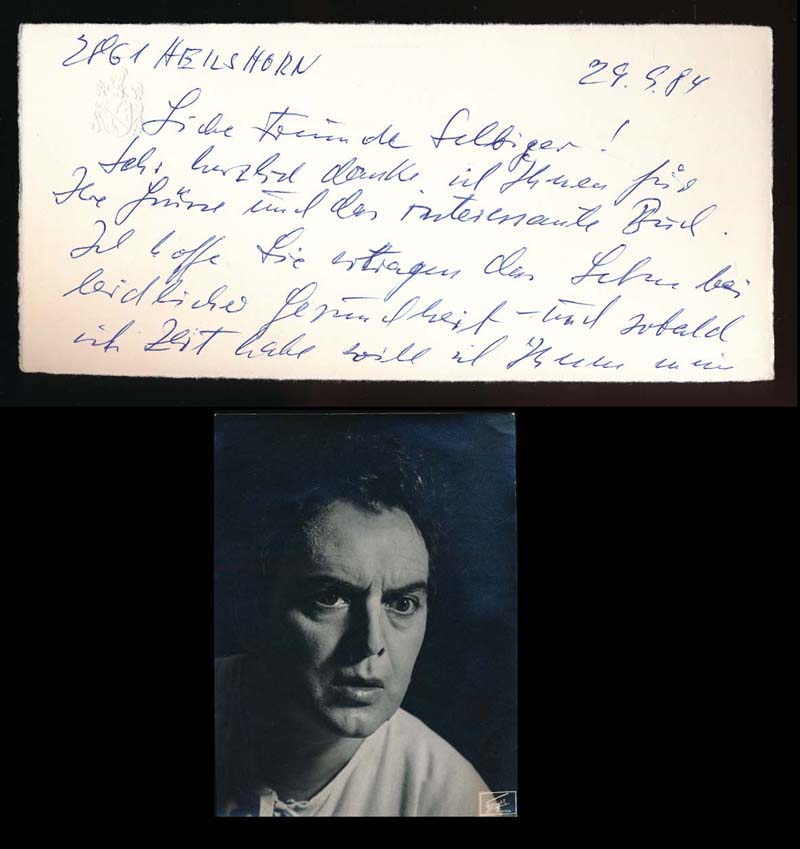 2861 HEILSHORN 24.9.84
Liebe Freunde Selbiger!
Sehr herzlich danke ich Ihnen für
Ihre Grüsse und das interessante Buch.
Ich hoffe Sie ertragen das Leben bei
leidlicher Gesundheit – und sobald
ich Zeit habe will ich Ihnen mein